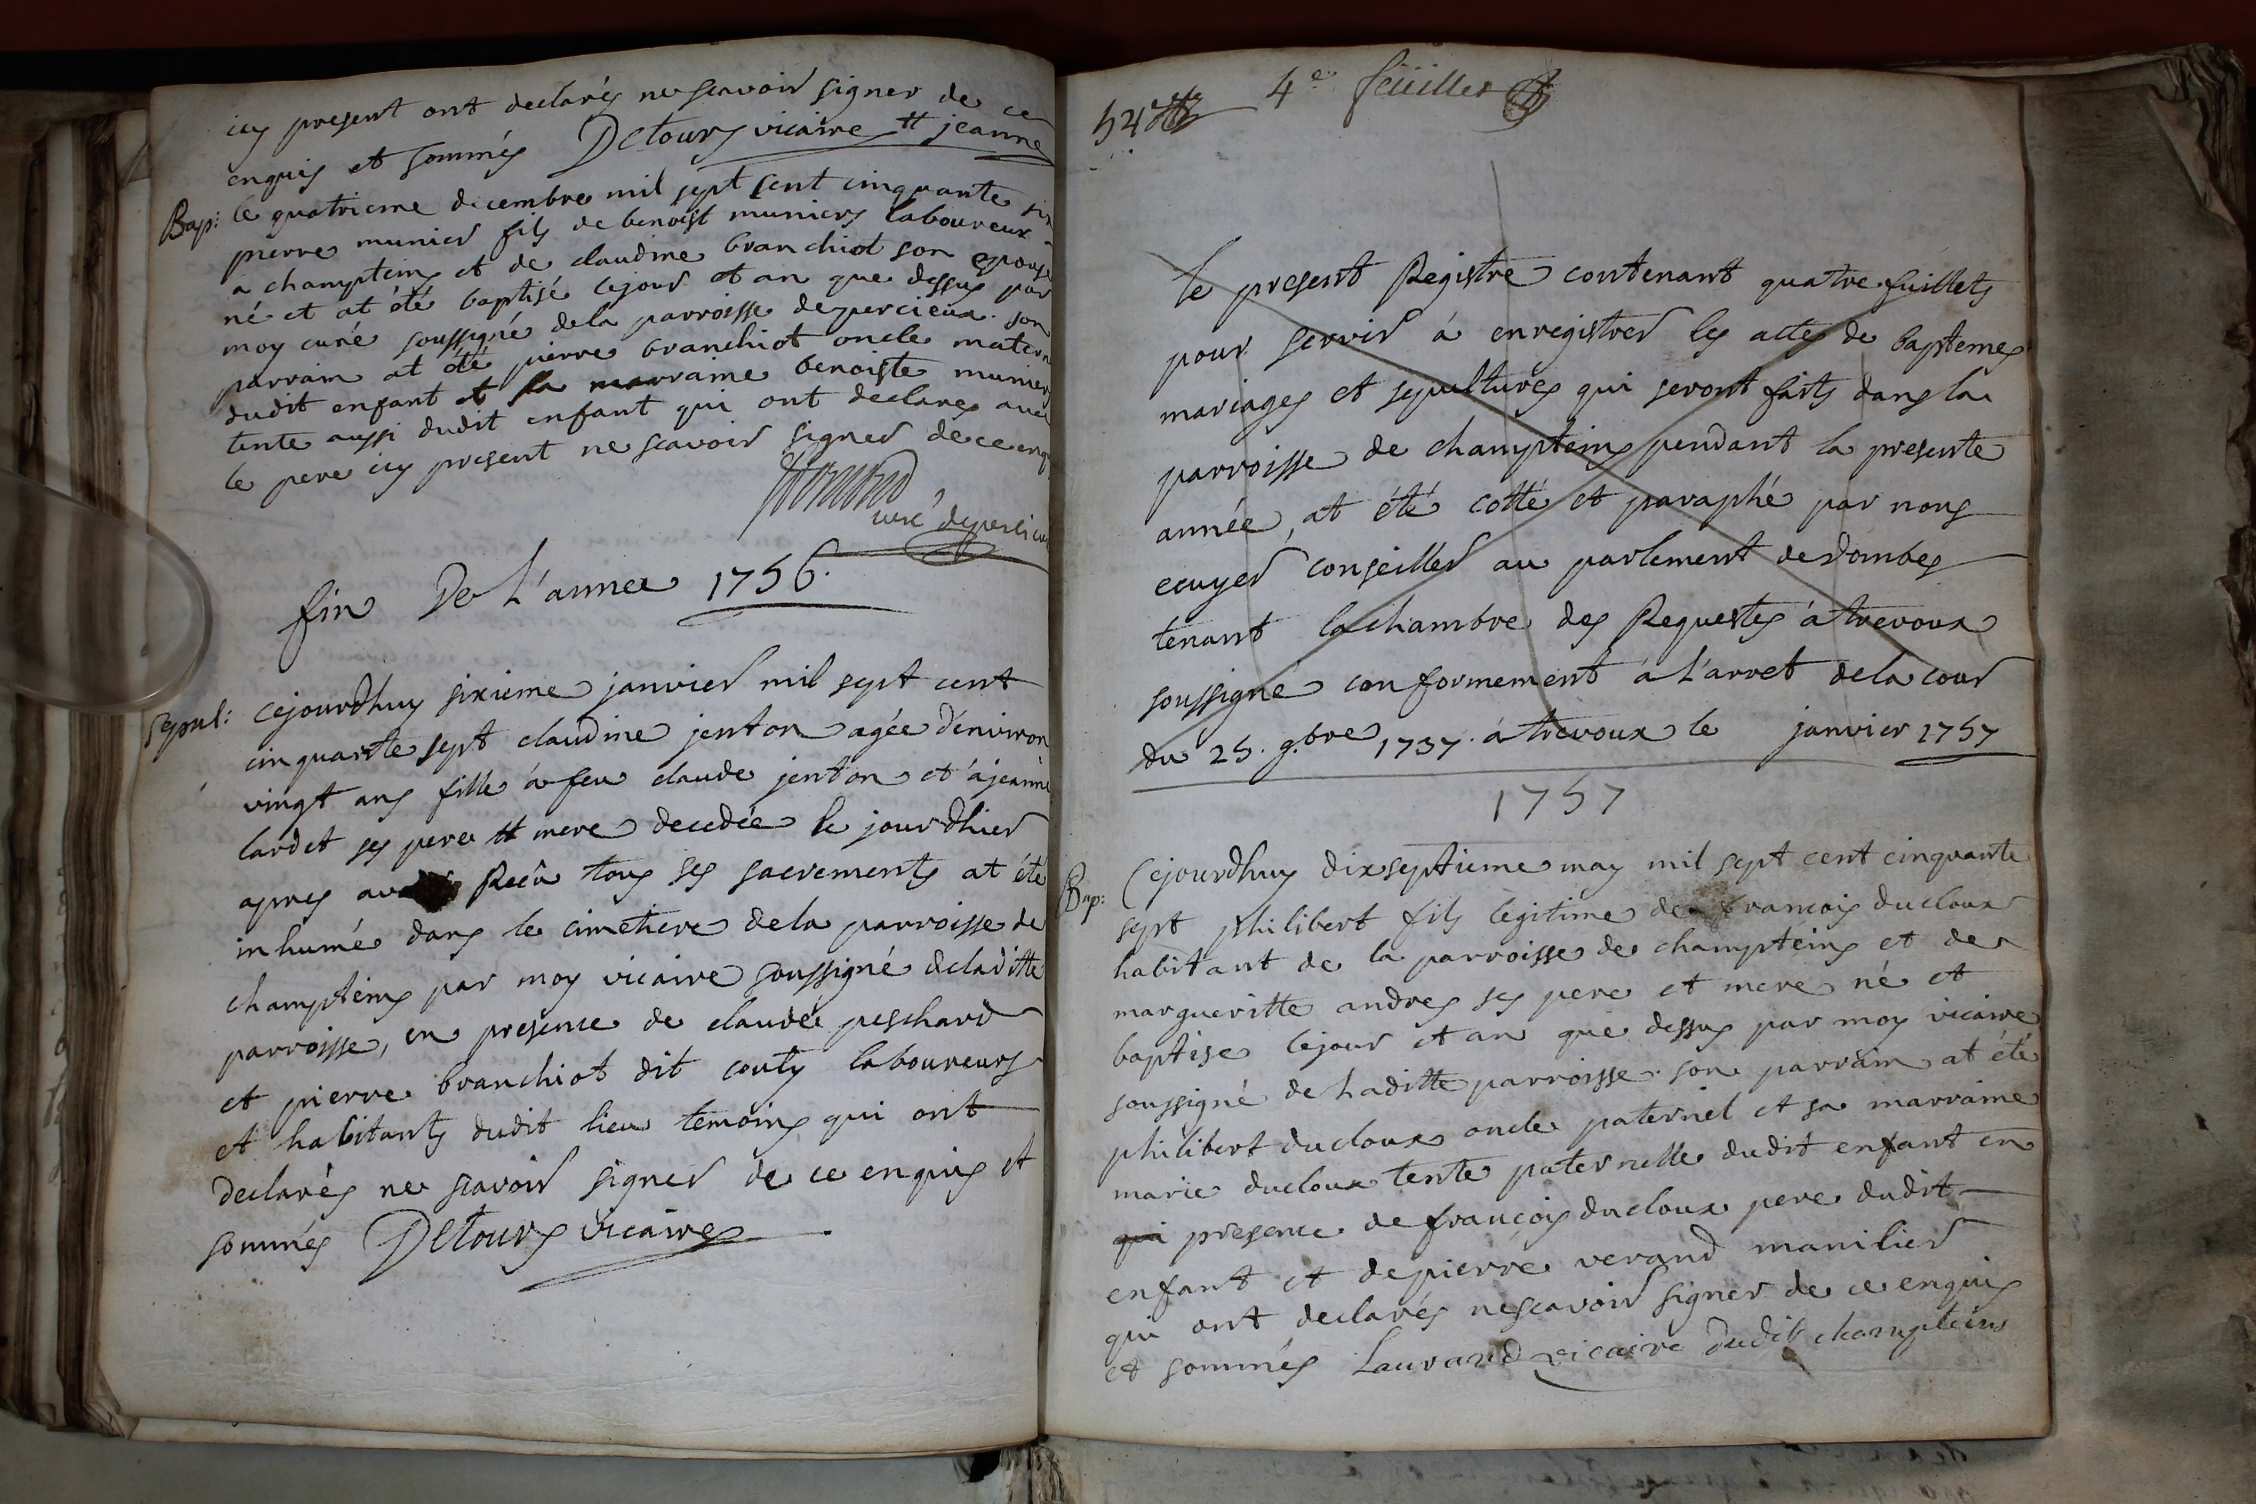 icy present ont declarés ne scavoir signer de ce
enquis et sommés Detours vicaire et jeanne
Bap: le quatrieme decembre mil sept cent cinquante six
pierre munier fils de benoist muniers laboureux
a champteins et de claudine branchiot son epouse
né et at été baptisé lejour et an que dessus par
moy curé soussigné dela parroisse depercieux. son
parrain at été pierre branchiot oncle matern
dudit enfant et sa marraine benoiste munier
tente aussi dudit enfant qui ont declares avec
le pere icy present ne scavoir signer de ce enq
curé depercieu
fin De L'annee 1756.
Sepul: cejourdhuy sixieme janvier mil sept cent
cinquante sept claudine jenton agée d'environ
vingt ans fille à feu claude jenton et à jeanne
lardet ses pere et mere decedée le jourdhier
apres avoir Recû tous ses sacrements at été
inhumé dans le cimetiere dela parroisse de
champteins par moy vicaire soussigné deladitte
parroisse, en presence de claude peschard
et pierre branchiot dit couty laboureurs
et habitants dudit lieu temoins qui ont
declarés ne scavoir signer de ce enquis et
sommés Detours vicaire
4e feüillet
le present Registre contenant quatre feüillets
pour servir à enregistrer les actes de baptemes
mariages et sepultures qui seront faits dans la
parroisse de champteins pendant la presente
année, at été cotté et paraphé par nous
ecuyer conseiller au parlement de Dombes
tenant la chambre des Requestes à trevoux
soussigné conformement à L'arret dela cour
du 25. 9.bre 1737. à trevoux le janvier 1757
1757
Bap: Cejourdhuy dixseptieme may mil sept cent cinquante
sept philibert fils legitime de francois ducloux
habitant de la parroisse de champteins et de
margueritte andres ses pere et mere né et
baptise lejour et an que dessus par moy vicaire
soussigné de laditte parroisse. son parrain at été
philibert ducloux oncle paternel et sa marraine
marie ducloux tente paternelle dudit enfant en
qui presence de françois ducloux pere dudit
enfant et de pierre verand manilier
qui ont declarés nescavoir signer de ce enquis
et sommés Laurand vicaire dudit champteins